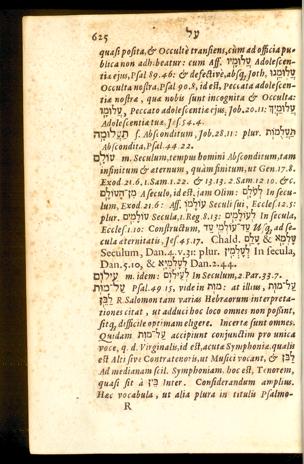 625 על
quasi posita, & Occultè transiens, cùm ad officia pu-
blica non adhibeatur: cum Aff. עֲלוּמָיו Adolescen-
tia ejus, Psal 89.46: & defectivè, absq, Joth, עֲלֻמֵנוּ
Occulta nostra, Psal 90.8, id est, Peccata adolescen-
tiæ nostræ, qua nobis sunt incognita & Occulta:
עֲלוּמָו, Peccata adolescentiæ ejus, Job.20.11: עֲלוּמַיִךְ
Adolescentiæ tuæ, Jes.54.4.
תַּעֲלוּמָה f. Absconditum, Job.28.11: plur. תַּעֲלֻמוֹת
Abscondita, Psal.44.22.
עוֹלָם m. Seculum, tempus homini Absconditum, tam
infinitum & æternum, quàm finitum, ut Gen.17.8.
Exod.21.6, 1.Sam.1.22. & 13.13.2.Sam 12 10. &c.
מִן־הָעוֹלָם A seculo, id est, jam Olim: לְעֹלָם In secu-
lum, Exod.21.6: Aff. עוֹלָמוֹ Seculi sui, Eccles.12.5:
plur. עוֹלָמִים Secula, 1.Reg.8.13: לְעוֹלָמִים In secula,
Eccles.1.10: Constructum, עַד־עוֹלְמֵי עַד Usq, ad se-
cula æternitatis, Jes.45.17. Chald. עָלַם & עָלְמָא
Seculum, Dan.4.v.31: plur. לְעָלְמִין In secula,
Dan.5.10, & לְעָלְמַיָּא Dan.2.44.
עֵילוֹם m. idem: לְעֵילוֹם In Seculum, 2 Par.33.7.
עַל־מוּת Psal.49 15, vide in מוּת: at illius, עַל־מוּת
לַבֵּן R. Salomon tam varias Hebræorum interpreta-
tiones citat, ut adduci hoc loco omnes non possint,
sitq, difficile optimam eligere. Incertæ sunt omnes.
Quidam עַל־מוּת accipiunt conjunctim pro unica
voce, q. d. Virginalis, id est, acuta Symphonia: qualis
est Alti sive Contratenoris, ut Musici vocant, & לַבֵּן
Ad medianam scil. Symphoniam. hoc est, Tenorem,
quasi sit à בֵּין Inter. Considerandum amplius.
Hæc vocabula, ut alia plura in titulis Psalmo-
R